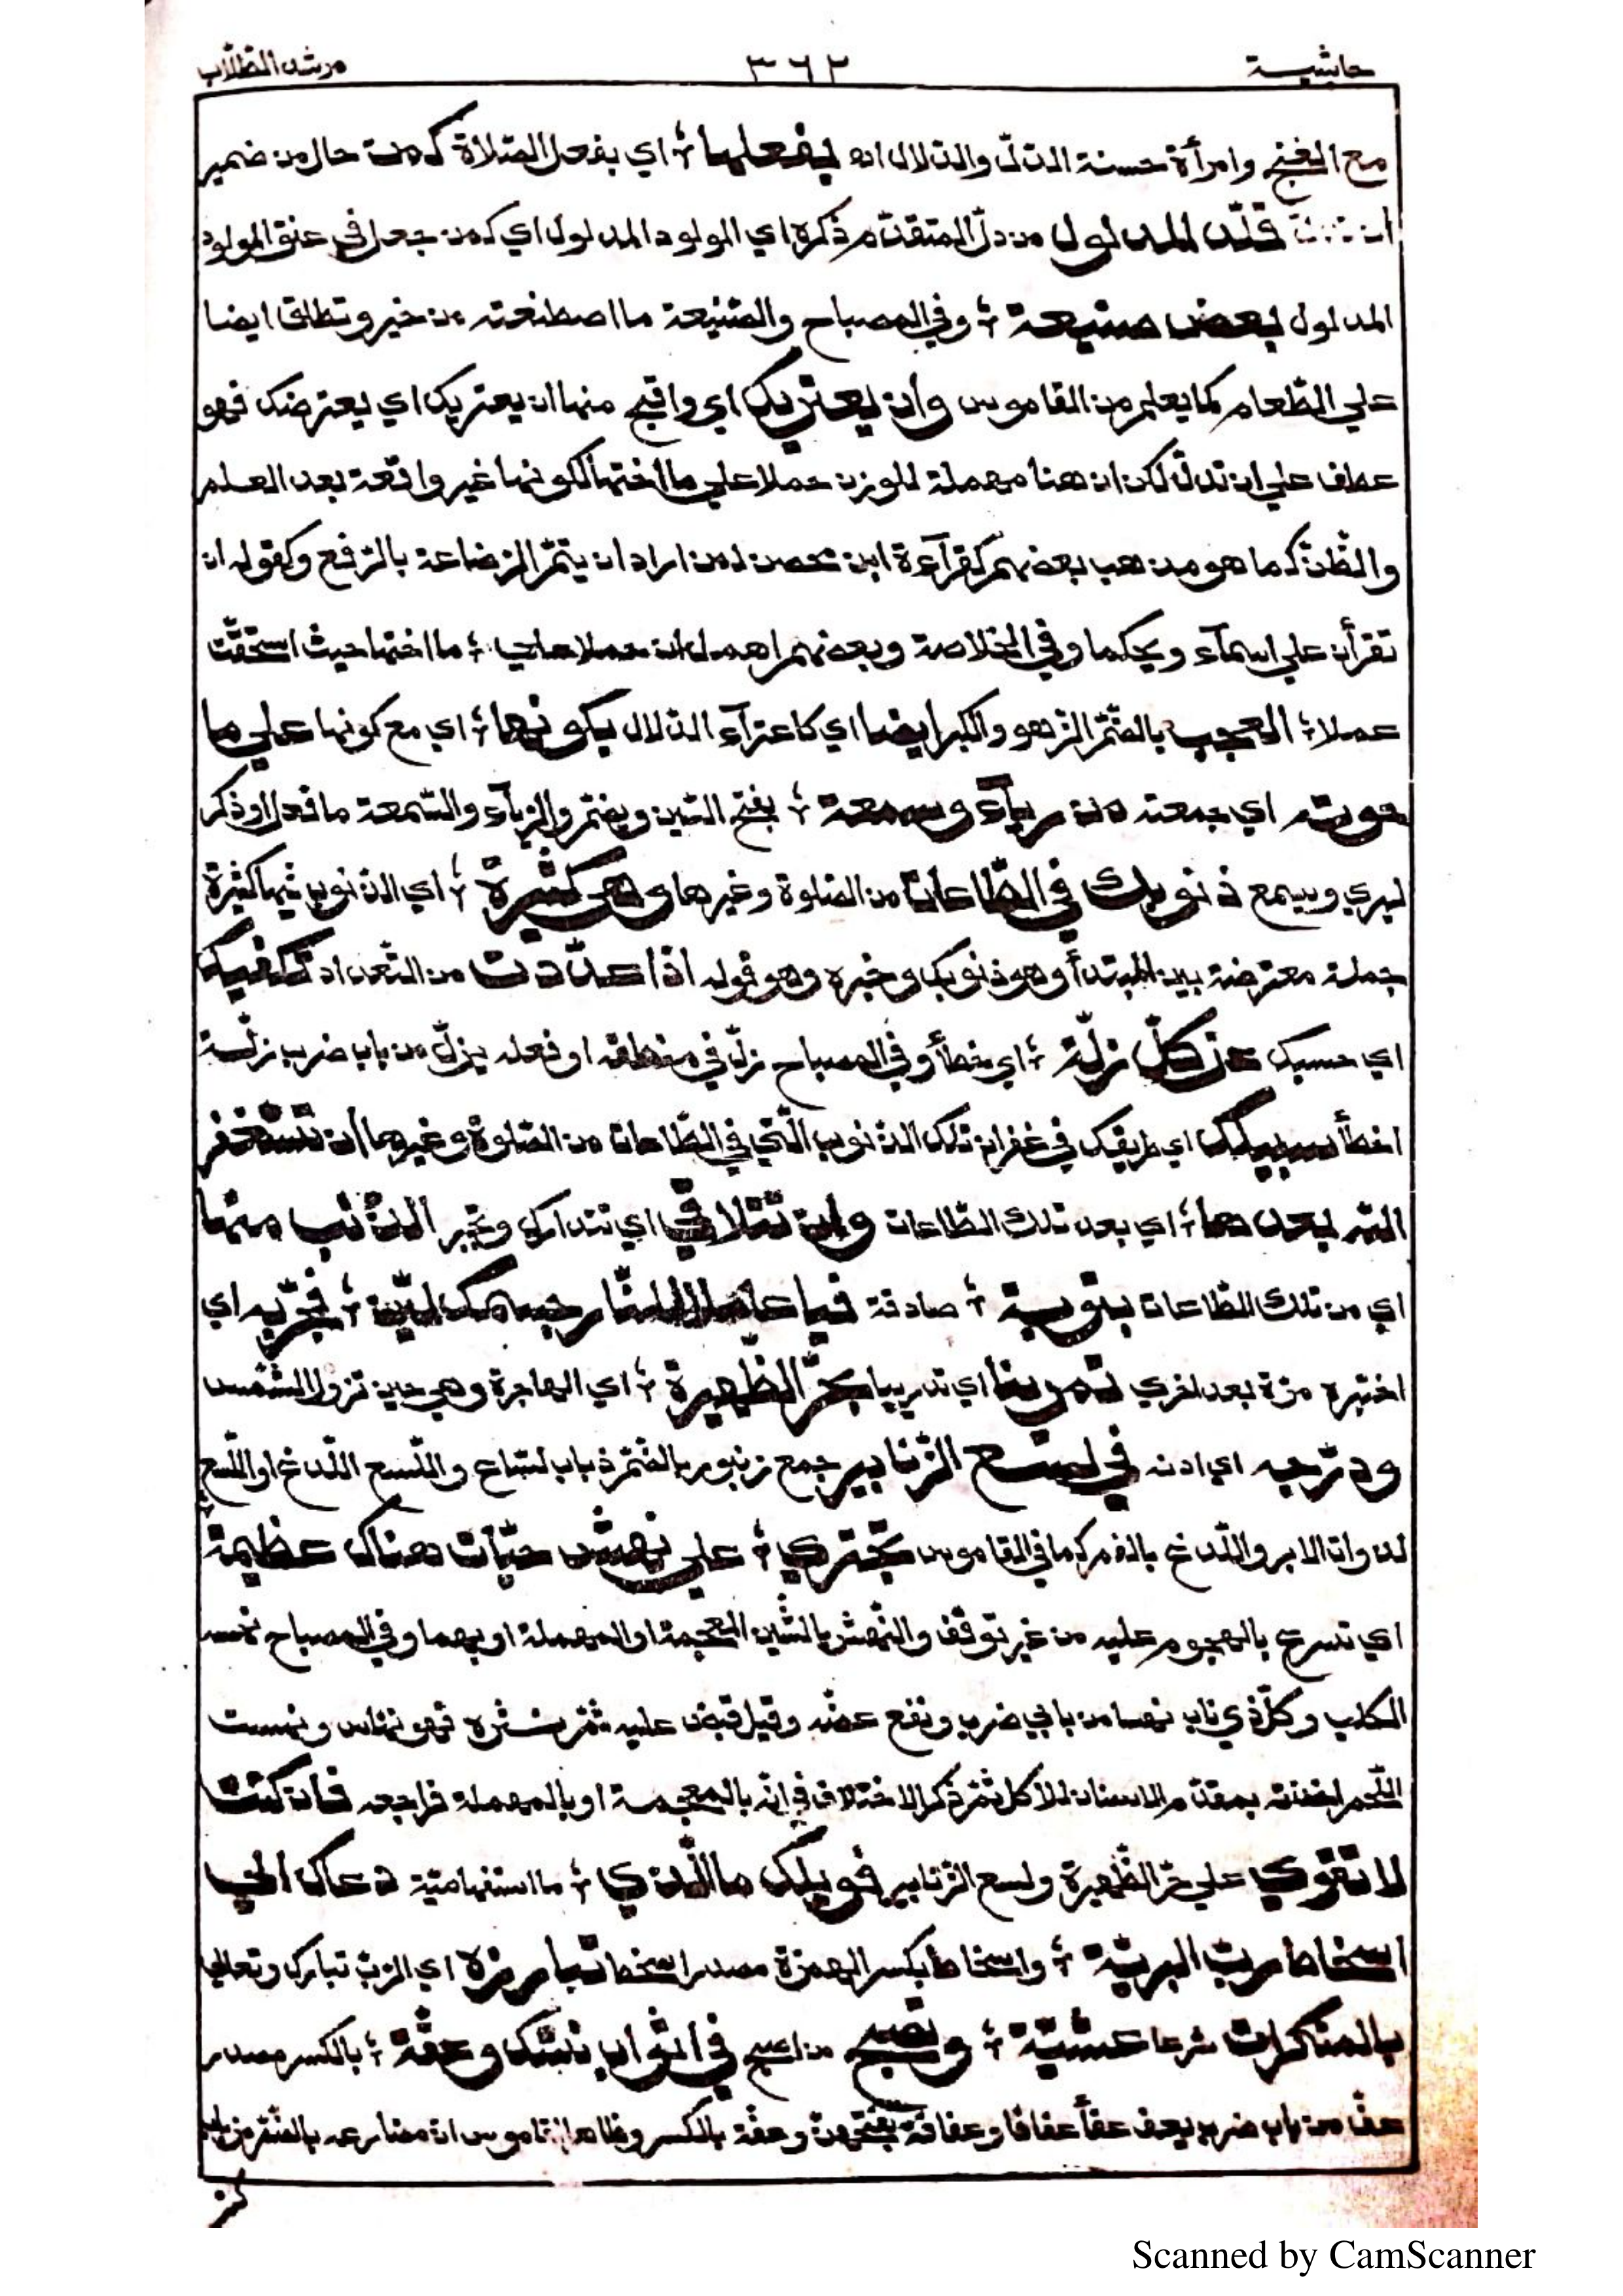 حاشية ٣٦٢ مرشد الطّلّاب
مع الغنج وامرأة حسنة الدلّ والدلال اه يفعلها ؛ اي بفعل الصّلاة كـمن حال من ضمير
قلّد المدلول من دلّ المتقدّم ذكره اي المولود المدلول اي كمن جعل في عنق المولود
المدلول بعض صنيعة ؛ وفي المصباح والصّنيعة ما اصطنعته من خير وتطلق ايضا
علي الطّعام كما يعلم من القاموس وان يعتريك اي واقبح منها ان يعتريك اي يعترضك فهو
عطف علي ان تدلّ لكن ان هنا مهملة للوزن حملا علي ما اختها لكونها غير واقعة بعد العلم
والظّنّ كما هو مذهب بعضهم كقرآءة ابن محصن لمن اراد ان يتمّ الرّضاعة بالرّفع وكقوله ان
تقرأن علي اسمآء ويحكما وفي الخلاصة وبعضهم اهمل ان حملا علي ؛ ما اختها حيث استحقّت
عملا ؛ العجب بالضّمّ الزّهو والكبر ايضا اي كاعترآء الدّلال بكونها ؛ اي مع كونها علي ما
حوته اي جمعته من ريآء وسمعة ؛ بفتح السّين ويضمّ والرّيآء والسّمعة ما فعل او ذكر
ليري ويسمع ذنوبك في الطّاعات من الصّلوة وغيرها وهي كثيرة ؛ اي الذنوب فيها كثيرة
جملة معترضة بين المبتدأ وهو ذنوبك وخبره وهو قوله اذا عدّدت من التّعداد تكفيك
اي حسبك عن كلّ زلّة ؛ اي خطأ وفي المصباح زلّ في منطقه او فعله يزلّ من باب ضرب زلّة
اخطأ سبيلك اي طريقك في غفران تلك الذنوب الّتي في الطّاعات من الصّلوة وغيرها أن تستغفر
الله بعدها ؛ اي بعد تلك الطّاعات وان تتلافي اي تتدارك وتجبر الذّنب منها
اي من تلك الطّاعات بتوبة ؛ صادقة فيا عاملا للنّار جسمك ليّن ؛ فجرّبه اي
اختبره مرّة بعد اخري تمرينا اي تدريبا بحرّ الظّهيرة ؛ اي الهاجرة وهي حين تزول الشّمس
ودرّجه اي ادنه في لسع الزّنابير جمع زنبور بالضّمّ ذباب لسّاع واللّسع اللّدغ او اللّسع
لذوات الابر واللّدغ بالفم كما في القاموس تجتري ؛ علي نهش حيّات هناك عظيمة
اي تسرع بالهجوم عليه من غير توقّف والنّهش بالشّين المعجمة او المهملة او بهما وفي المصباح نهسه
الكلب وكلّ ذي ناب نهسا من بابي ضرب ونفع عضّه وقيل قبض عليه ثمّ نثره فهو نهّاس ونهست
اللّحم اخذته بمقدّم الاسنان للاكل ثمّ ذكر الاختلاف في انّه بالمعجمة او بالمهملة فراجعه فان كنت
لا تقوي علي حرّ الظّهيرة ولسع الزّنابير فويلك ما الّذي ؛ ما استفهاميّة دعاك الي
اسخاط ربّ البريّة ؛ واسخاط بكسر الهمزة مصدر اسخط تبارزه اي الرّبّ تبارك وتعالي
بالمنكرات شرعا عشيّة ؛ وتصبح من اصبح في اثواب نسّك وعفّة ؛ بالكسر مصدر
عفّ من باب ضرب يعف عفّاً عفافا وعفافة بفتحهنّ وعفّة بالكسر وظاهر القاموس ان مضارعه بالضّمّ من باب
Scanned by CamScanner